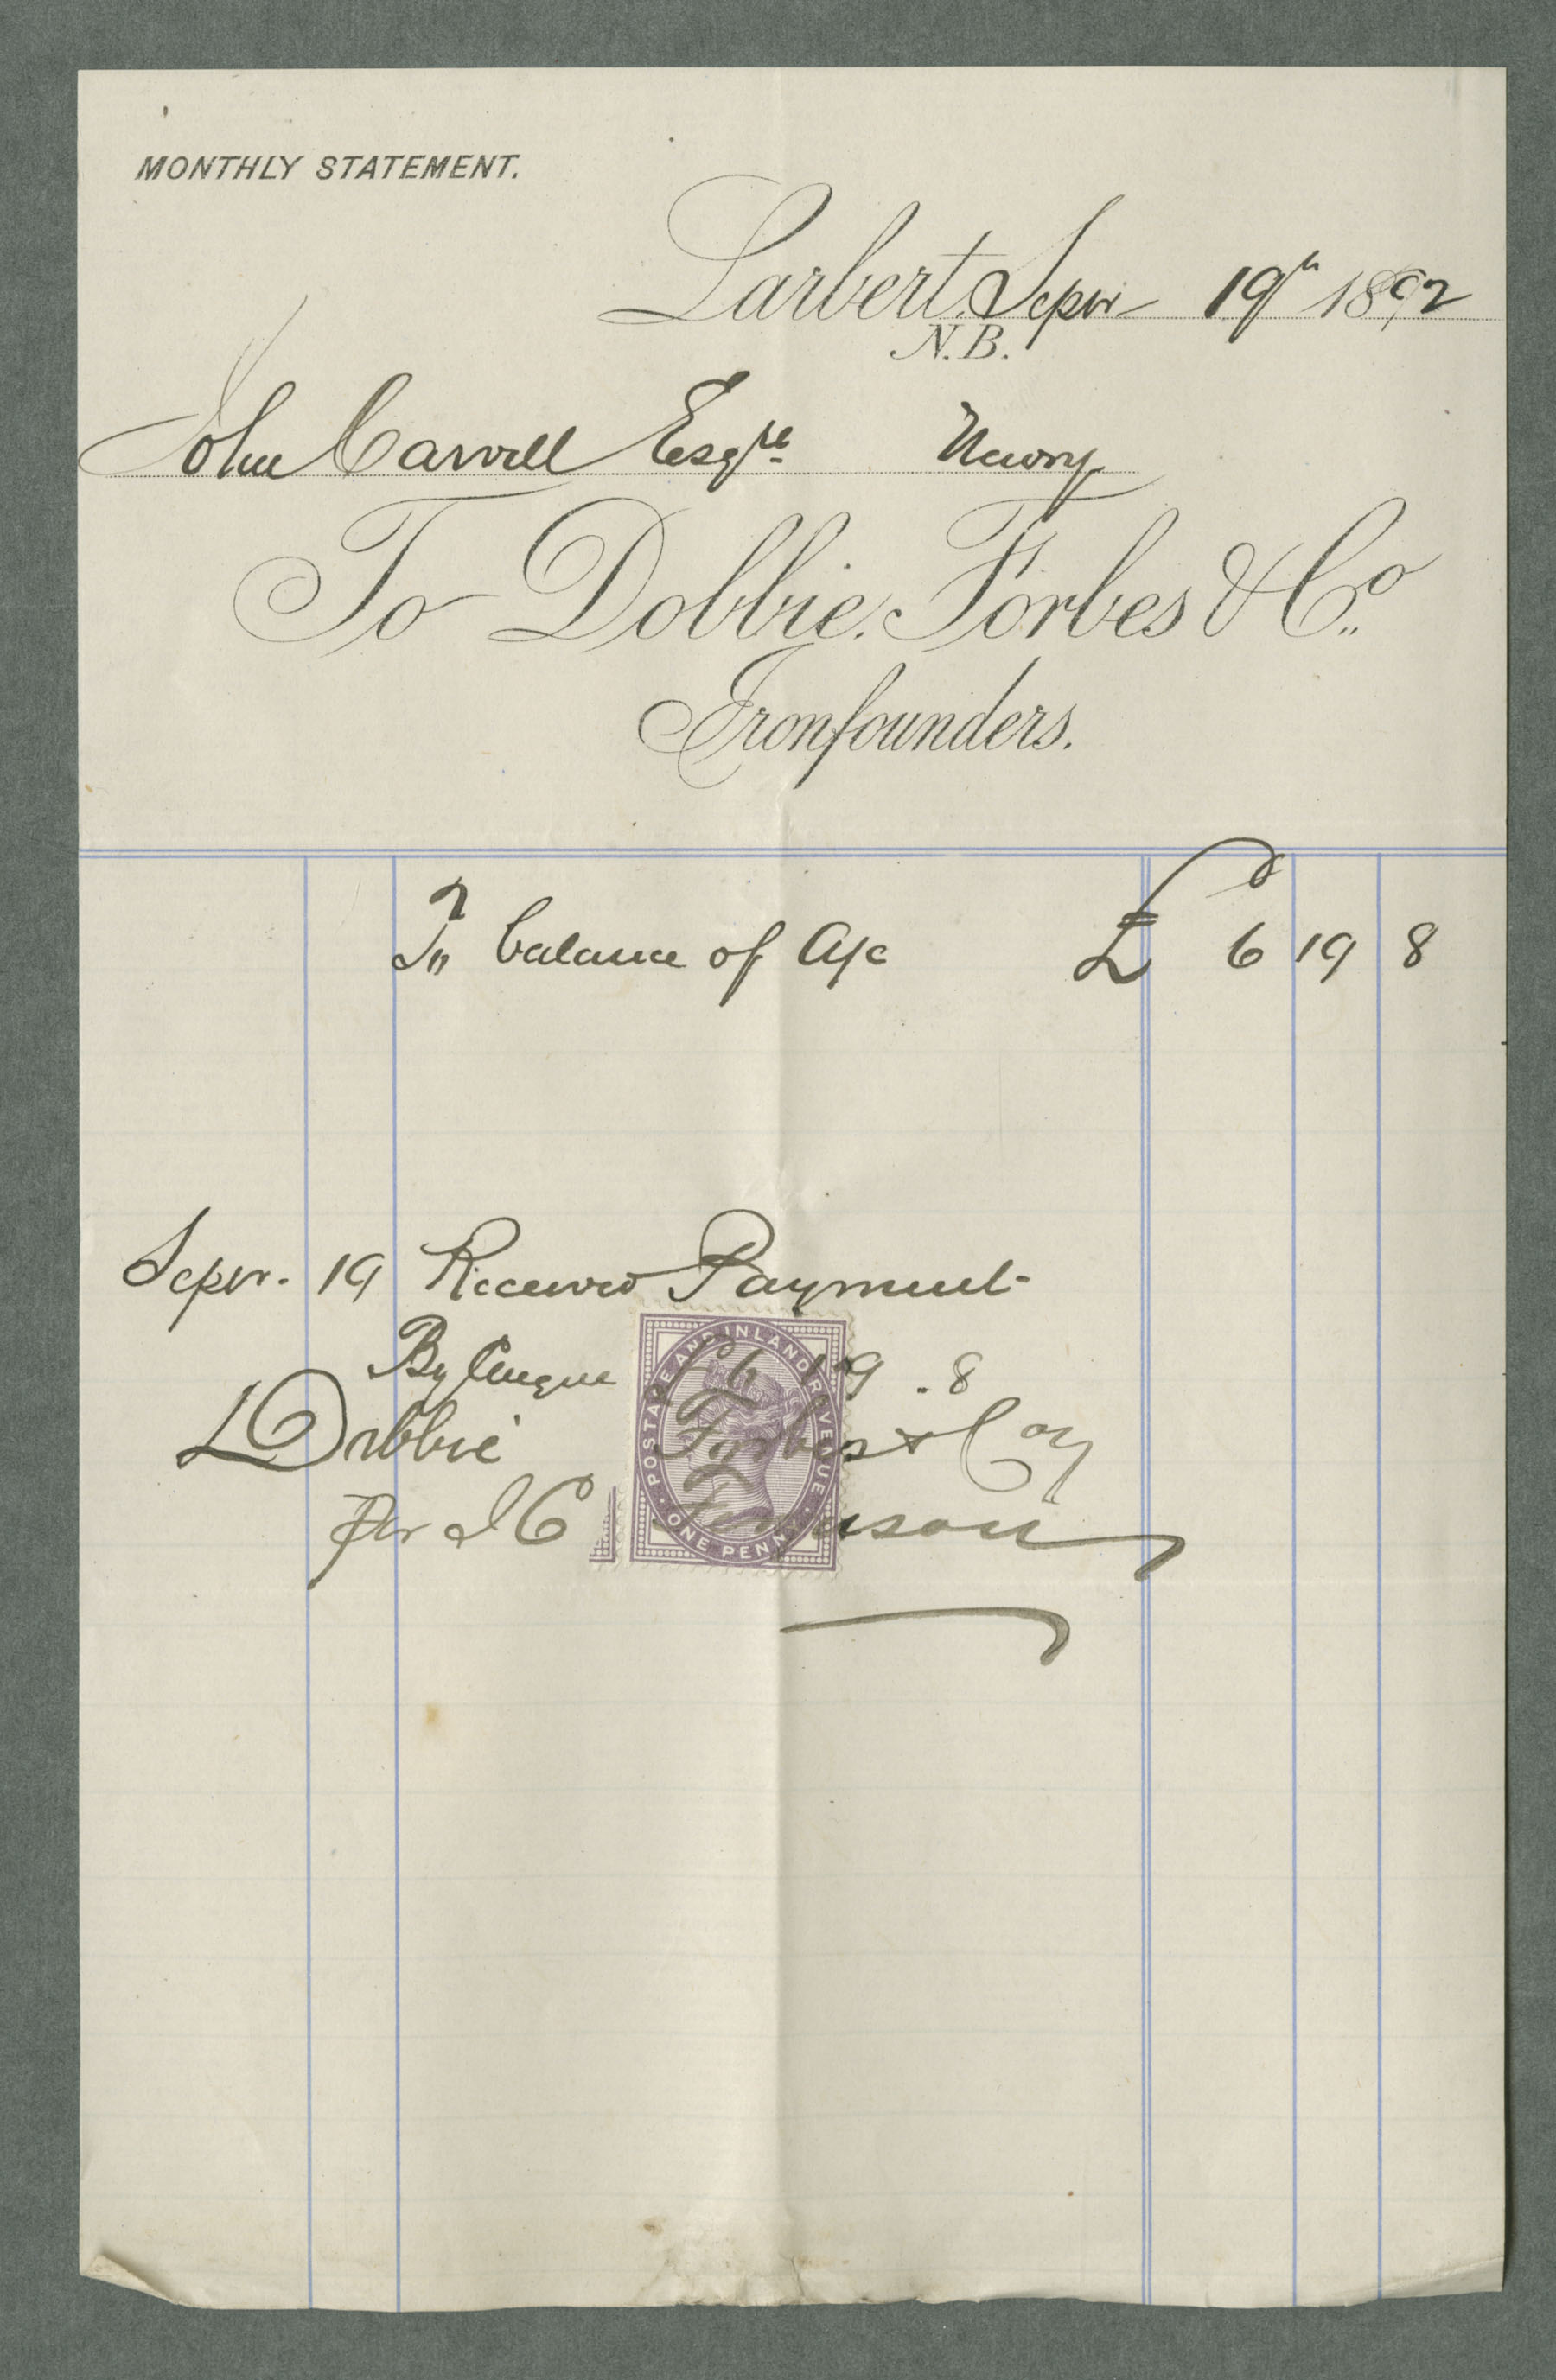 MONTHLY STATEMENT.
Larbert, Sepr 19th 1892
N.B.
John Carvill Esqre Newry
To Dobbie, Forbes & Co.
Ironfounders.
To balance of A/c £ 6 19 8
Sepr. 19 Received Payment
By Cheque £6 19.8
Dobbie Forbes & Coy
per J C Ferguson
POSTAGE AND INLAND REVENUE
ONE PENNY